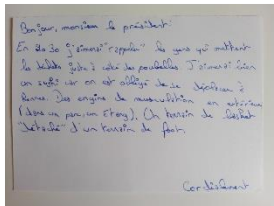 Bonjour, monsieur le président!
En 2030 j'aimerai "rappeler" les gens qui mettent
les déchets juste à côté des poubelles. J'aimerai bien
un car on est obligé de se déplacer à
Rennes. Des engins de musculation en extérieur
(dans un parc, un étang). Un terrain de basket
"détaché" d'un terrain de foot.
Cordialement